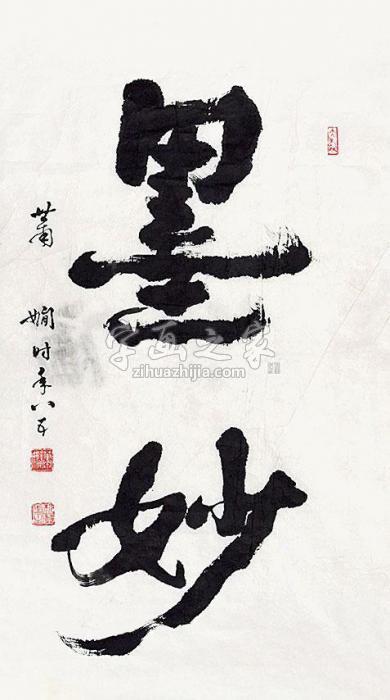 墨妙
萧娴时年八五
字画之家
zihuazhijia.com